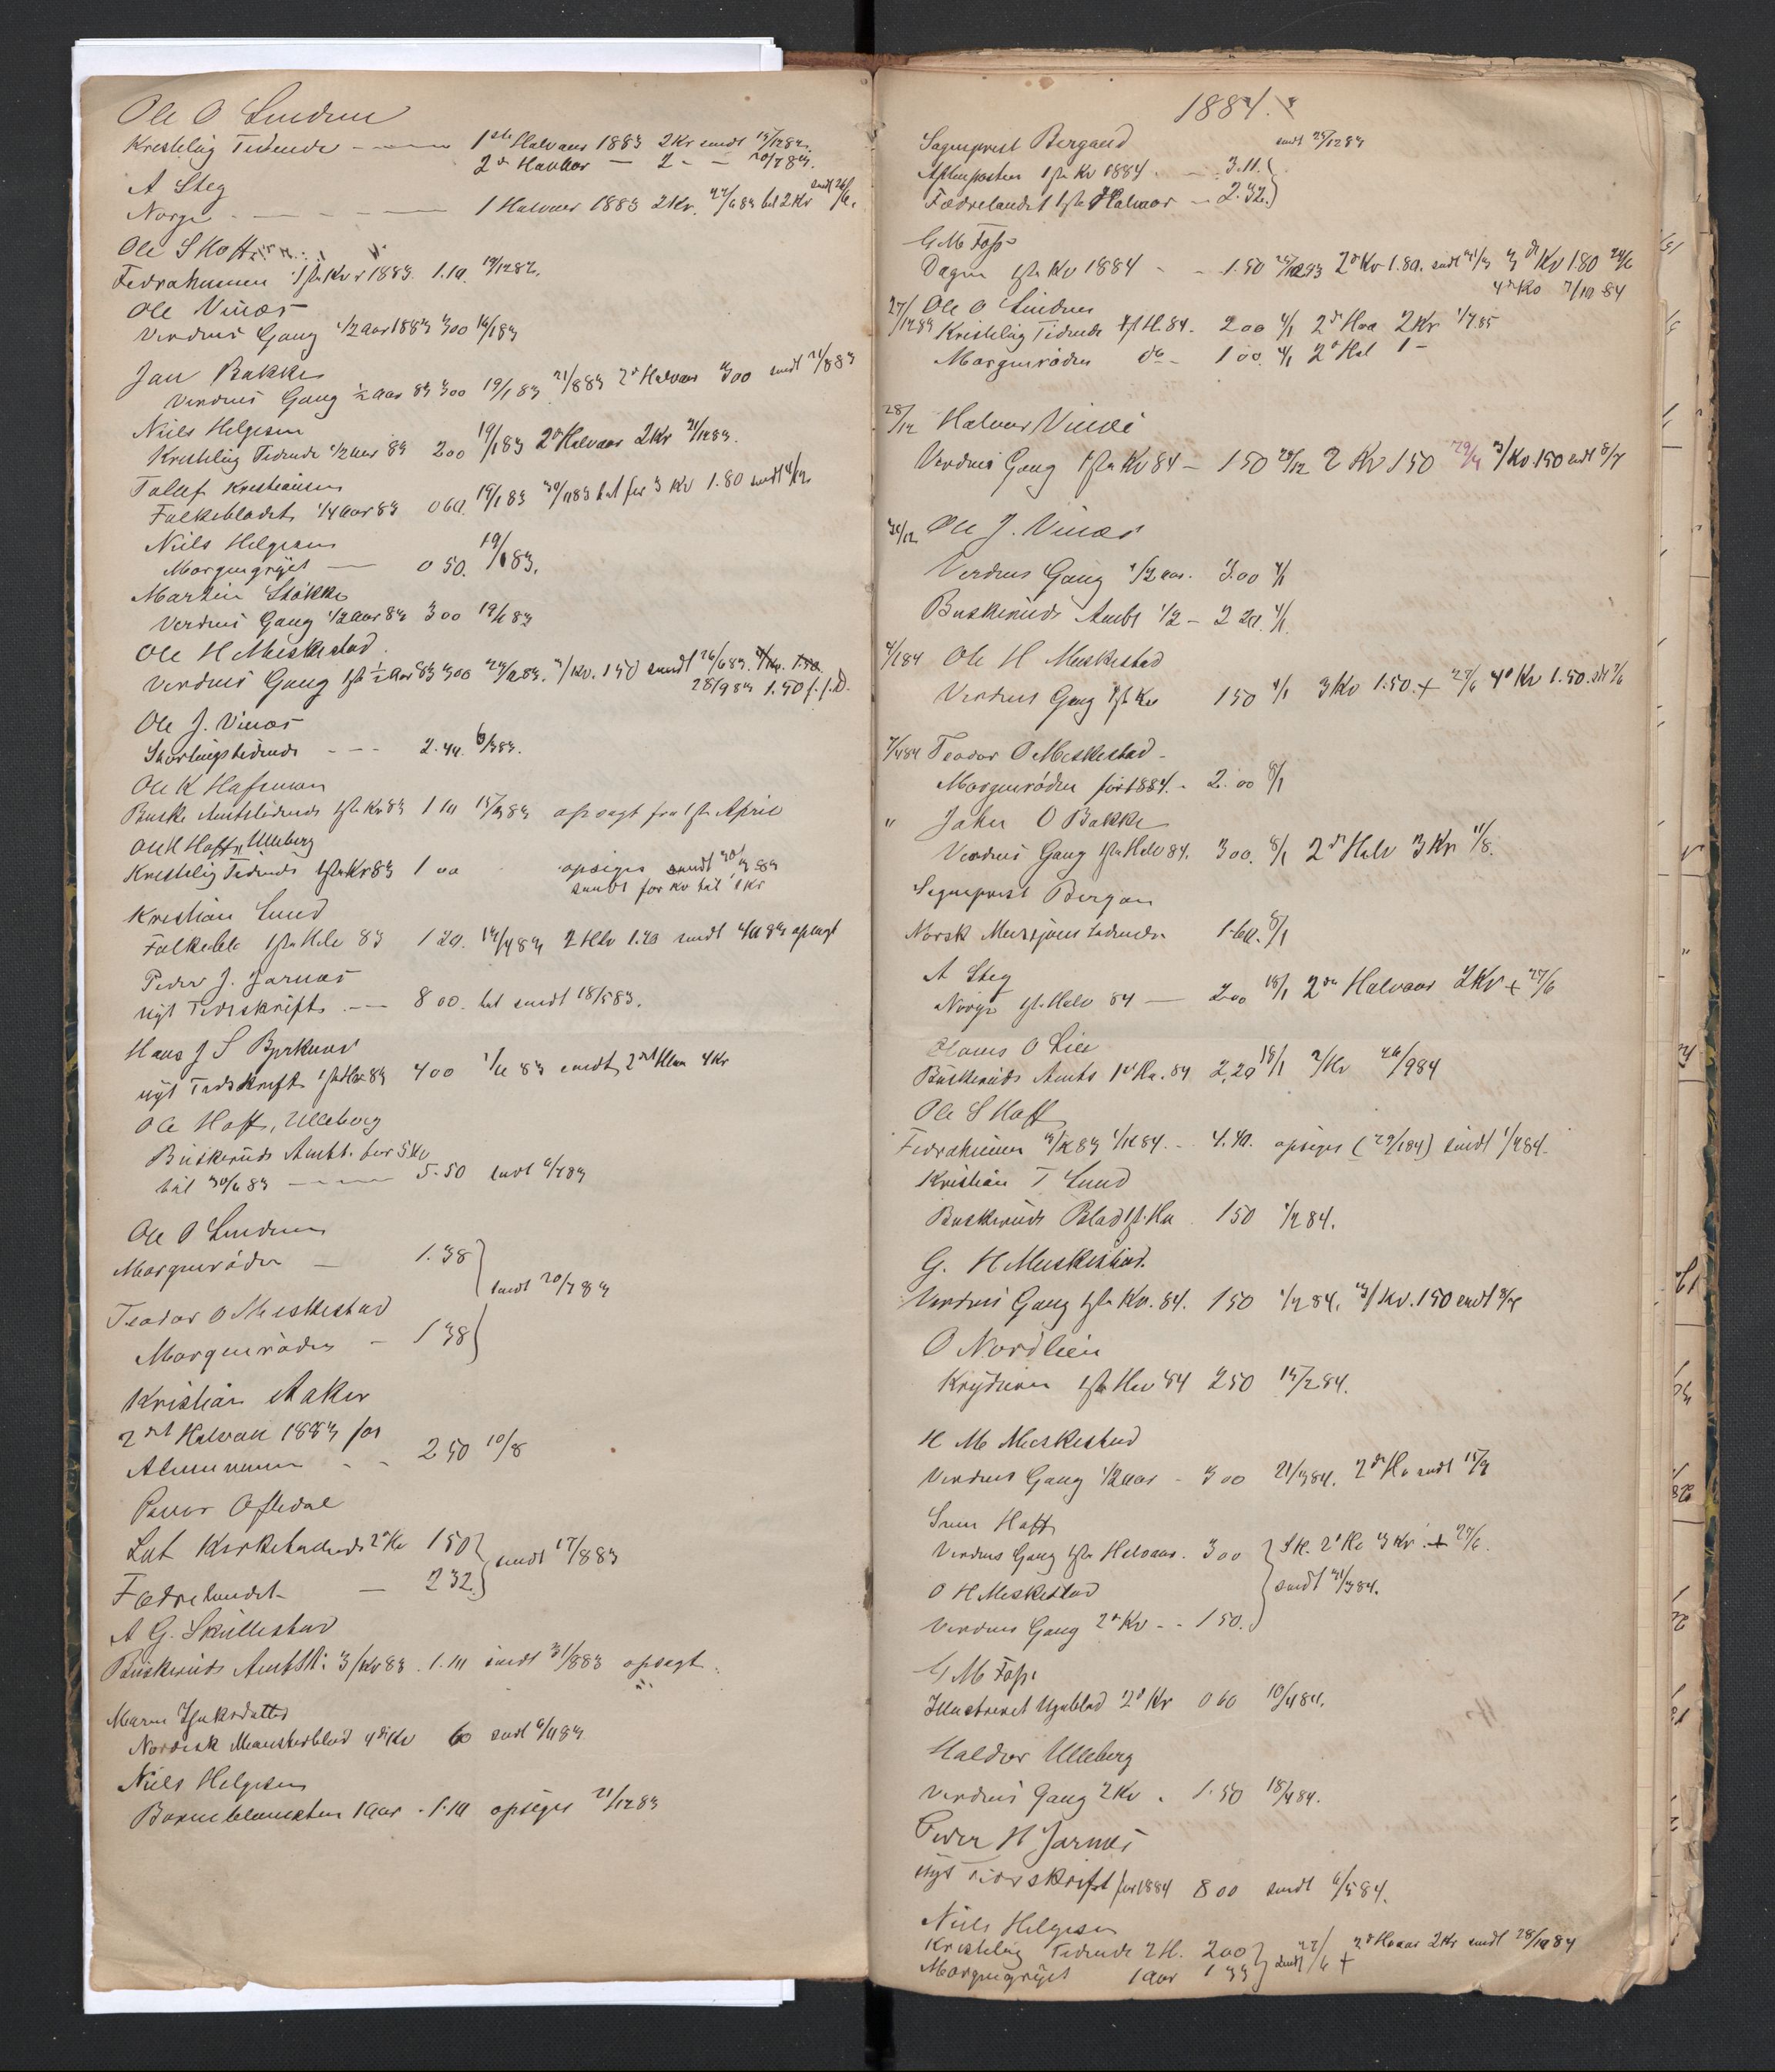 Ole O Lindrum
Kristelig Tidende - - - 1ste Halvaar 1883 2Kr sendt 15/1282.
2d Halvaar - 2 - - 20/783.
A Steg
Norge - - - - 1 Halvaar 1883 2Kr. 27/683 bet 2Kr sendt 26/6.
Ole S Hoff
Fedraheimen 1ste Kv 1883. 1.10. 19/1282.
Ole Vinæs
Verdens Gang 1/2 aar 1883 300 16/183
Jan Bakke
Verdens Gang 1/2 aar 83 300 19/183 21/883 2d Halvaar 300 sendt 21/883
Niels Helgesen
Kristelig Tidende 1/2 aar 83 200 19/183 2d Halvaar 2Kr 21/1283.
Tolef Kristiansen
Folkebladet 1/4 aar 83 060 19/183 30/483 bet for 3 Kv 1.80 sendt
Niels Helgesen
Morgengryet - 0 50. 19/183.
Martin Stokke
Verdens Gang 1/2 aar 83 300 19/183
Ole H Meskestad.
Verdens Gang 1ste 1/2 Aar 83 300 24/283. 3/Kv. 150 sendt 26/683.
28/983 1.50
Ole J. Vinæs
Storthingstidende - - - 2.40. 6/383.
Ole K Hafsmoen
Busk. Amtstidende 1ste Kv 83 1 10 15/383 opsagt fra 1ste April
Ole H Hoff, Ulleberg
Kristelig Tidende 1ste Kv 83 1 00 opsiges sendt 30/383
sendt for Kv til 1Kr
Kristian Lund
Folkebl. 1ste Halv 83 1 20. 14/483 2 Hlv 1.20 sendt opsagt
Peder J. Jarnæs
nyt Tidsskrift - 8 00. bet sendt 18/583.
Hans J S Byrknæs
nyt Tidsskrift 1ste Hlv 83 400 1/683 sendt 2det Hlva 4Kr
Ole Hoff, Ulleberg
Buskeruds Amtst. for 5Kv
til 30/683 - - - 5.50 sendt 6/783
Ole O Lindrum
Morgenrøden - 1.38
sendt 20/783
Teodor O Meskestad
Morgenrøden - 1 38
Kristian Aaker
2det Halvaar 1883 for
- - 250 10/8
Peder Oftedal
Lut Kirketidende 2d Kv 150
sendt 17/883
Fædrelandet - 232
A G. Skullestad
Buskeruds Amtst: 3/Kv83 1.10 sendt 31/883 opsagt.
Maren
Nordisk Mønsterblad 4de Kv 60 sendt 6/1183
Niels Helgesen
Borneblomsten 1 aar . 1.10 opsiges 21/1283
1884.
Sogneprest Bergan sendt 25/1283
Aftenposten 1ste Kv 1884 - - 3.11.
Fædrelandet 1ste Halvaar - 2.32.
G M Foss
Dagen 1ste Kv 1884 - - 1.80 25/1283 2d Kv 1.80. sendt 21/3 3de Kv 1.80 24/6
4de Kv 7/10 84
27/1283 Ole O Lindrum
Kristelig Tidende 1ste H. 84. 200 4/1 2d Haa 2Kr 1/7.85
Morgenrøden do - 1 00. 4/1 2d Hal 1 -
28/12 Halvor Vinæs
Verdens Gang 1ste Kv 84 - 150 29/12 2 Kv 150 29/3 3/Kv 150 sendt 8/7
31/12 Ole J. Vinæs
Verdens Gang 1/2 aar. 3.00 4/1
Buskeruds Amts 1/2 - 2 20. 4/1.
4/184 Ole H Meskestad
Verdens Gang 1ste Kv 150 4/1 3Kv 1.50. + 27/6 4d Kv 1.50.
7/184 Teodor O Meskestad -
Morgenrøden for 1884. - 2.00 8/1
" Johan O Bakke
Verdens Gang 1ste Halv 84. 300. 8/1 2d Halv 3Kr 11/8.
Sogneprest Bergan
Norsk Missions tidende 1.60. 8/1
A Steg
Norge 1ste Halv 84 - 200 18/1 2den Halvaar 2Kr + 27/6
Olaves O Lien
Buskeruds Amts 1ste Ha. 84 2,20 18/1 2/Hv 26/984
Ole S Hoff
Fedraheimen 4.40. opsiges (29/184) sendt 1/284.
Kristian T Lund
Buskeruds Blad 1st. Ha 150 1/284.
G. H Meskestad.
Verdens Gang 1ste Kv. 84. 150 1/284. 3/Kv. 150 sendt 8/7
O Nordlien
Krydseren 1ste Hav 84 250 15/284.
H M Meskestad
Verdens Gang 1/2 aar - 300 21/384. 2de Hv sendt 15/9
Sven Hoff
Verdens Gang 1ste Halvaar. 300 2d Ha 3 Kr + 27/6.
O H Meskestad sendt 31/384.
Verdens Gang 2d Kv - - 1 50.
G M Foss
Illustreret Ugeblad 2d Kv 060 10/484.
Haldor Ulleberg
Verdens Gang 2Kv . 1.50 18/484.
Peder H Jarnæs
nyt Tidsskrift for 1884 8 00 sendt 6/584.
Niels Helgesen
Kristelig Tidende 2 H. 200 sendt 27/6 + 2d Hvaar 2Kr sendt 28/1084
Morgengryet 1 aar 1 33